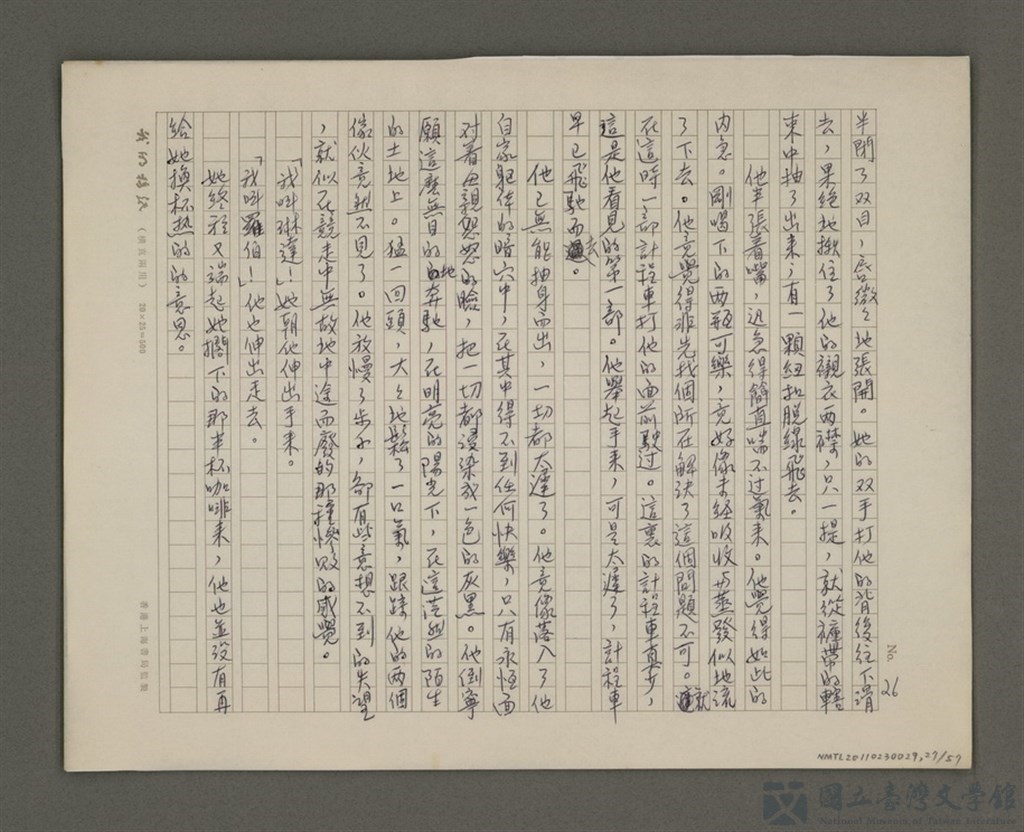 No. 26
半閉了双目，唇微々地張開。她的双手打他的背後往下滑
去，果絕地揪住了他的襯衣两襟，只一提，就從褲帶的轄
束中抽了出来；有一顆紐扣脱線飛去。
他半張着嘴，迫急得簡直喘不过氣来。他覺得如此的
内急。剛喝下的两瓶可樂，竟好像未經吸收與蒸發似地流
了下去。他竟覺得非先找個所在解決了這個問題不可。就
在這時一部計程車打他的面前駛过。這裏的計程車真少，
這是他看見的第一部。他舉起手来，可是太遲了，計程車
早已飛馳而去。
他已無能抽身而出，一切都太遲了。他竟像落入了他
自家軀体的暗穴中，在其中得不到任何快樂，只有永恒面
对着母親怨怒的臉，把一切都浸染成一色的灰黑。他倒寧
願這麼無目的地奔馳，在明亮的陽光下，在這茫然的陌生
的土地上。猛一回頭，大大地鬆了一口氣，跟踪他的两個
傢伙竟然不見了。他放慢了步子，卻有些意想不到的失望
，就似在競走中無故地中途而廢的那種慘敗的感覺。
「我叫琳達！」她朝他伸出手来。
「我叫羅伯！」他也伸出走去。
她終於又端起她擱下的那半杯咖啡来，他也並没有再
給她換杯熱的的意思。
我的稿紙（横直兩用）20×25=500
香港上海書局監製
NMTL20110230029,27/57
國立臺灣文學館
National Museum of Taiwan Literature